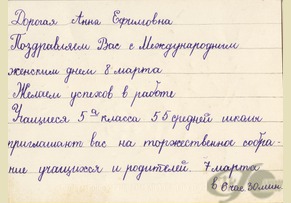 Дорогая Анна Ефимовна
Поздравляем Вас с Международним
женским днем 8 марта
Желаем успехов в работе
Учащиеся 5а класса 55 средней школы
приглашают вас на торжественное собра-
ние учащихся и родителей. 7 марта
в 6 час 30 мин.